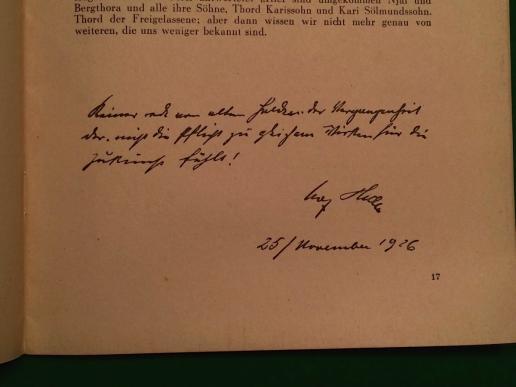 Bergthora und alle ihre Söhne, Thord Karissohn und Kari Sölmundssohn.
Thord der Freigelassene; aber dann wissen wir nicht mehr genau von
weiteren, die uns weniger bekannt sind.
Keiner rede von alten Helden der Vergangenheit
der nicht die Pflicht zu gleichem Wirken für die
Zukunft fühlt!
25/November 1926
17